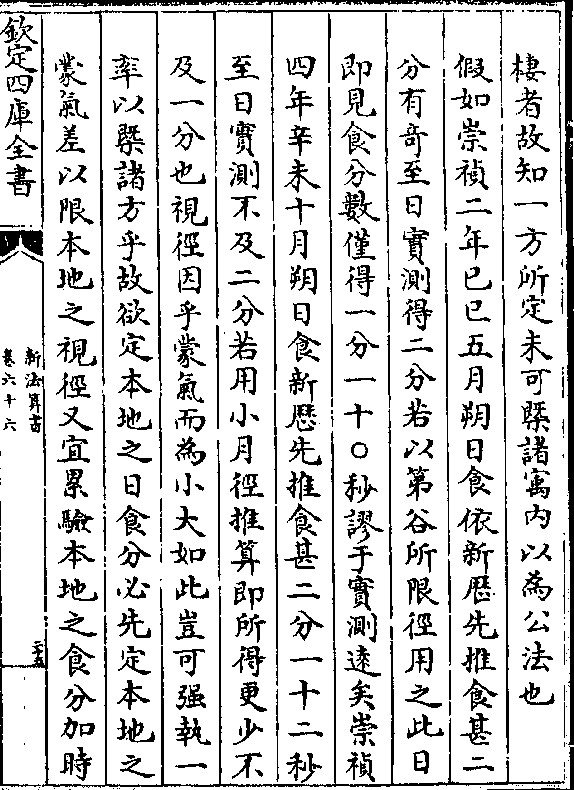 棲者故知一方所定未可槩諸寓内以為公法也
假如崇禎二年己巳五月朔日食依新歴先推食甚二
分有奇至日實測得二分若以第谷所限徑用之此日
即見食分數僅得一分一十〇秒謬于實測逺矣崇禎
四年辛未十月朔日食新歴先推食甚二分一十二秒
至日實測不及二分若用小月徑推算即所得更少不
及一分也視徑因乎蒙氣而為小大如此豈可强執一
率以槩諸方乎故欲定本地之日食分必先定本地之
蒙氣差以限本地之視徑又宜累驗本地之食分加時
欽定四庫全書
新法算書
卷六十六
二十五